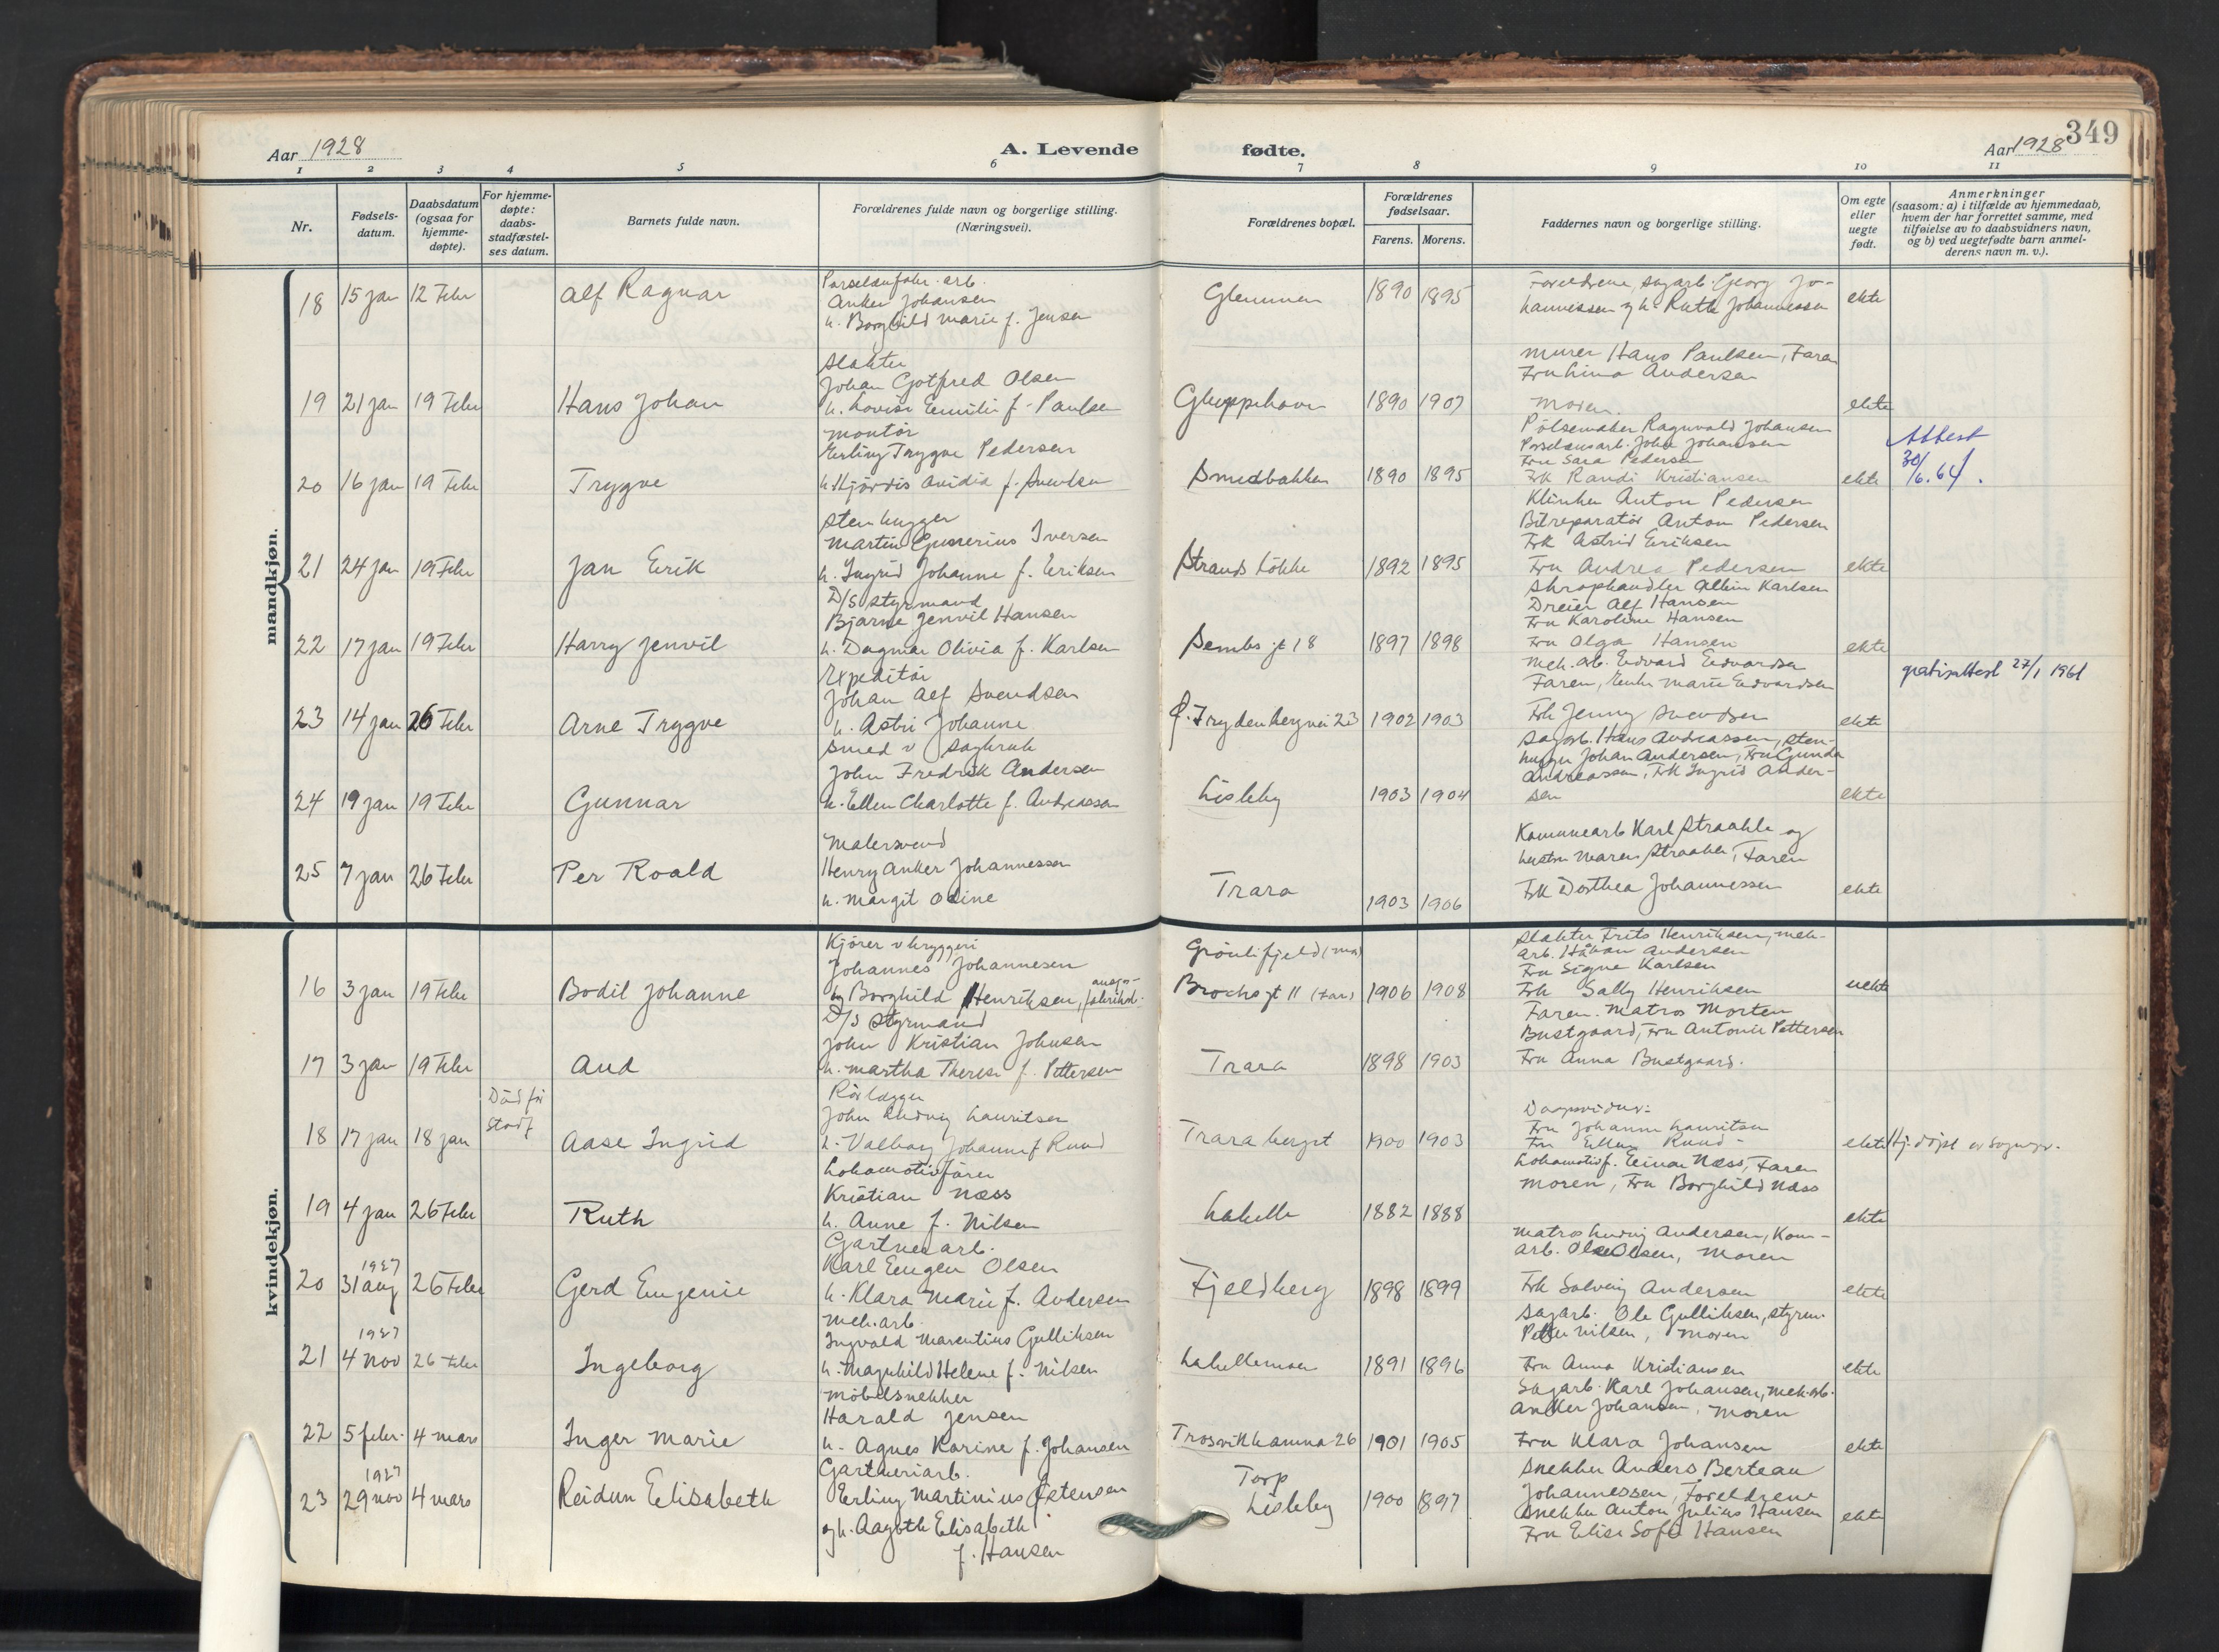 349
Aar 1928
A. Levende
fødte.
Aar 1928
1 2 3 4 5 6 7 8 9 10 11
Nr.
Fødsels-
datum.
Daabsdatum
(ogsaa for
hjemme-
døpte).
For hjemme-
døpte:
daabs-
stadfæstel-
ses datum.
Barnets fulde navn.
Forældrenes fulde navn og borgerlige stilling.
(Næringsvei).
Forældrenes bopæl.
Forældrenes
fødselsaar.
Farens. Morens.
Faddernes navn og borgerlige stilling.
Om egte
eller
uegte
født.
Anmerkninger
(saasom: a) i tilfælde av hjemmedaab,
hvem der har forrettet samme, med
tilføielse av to daabsvidners navn,
og b) ved uegtefødte barn anmel-
derens navn m. v.).
mandkjøn.
18 15 jan 12 Febr Alf Ragnar
Porselænfabr. arb.
Anker Johansen
h. Borghild Marie f. Jensen
Glemmen 1890 1895
Foreldrene, sagarb. Georg Jo-
hannessen og h. Ruth Johannessen
ekte
19 21 jan 19 Febr Hans Johan
Slakter
Johan Gotfred Olsen
h. Lovise Emilie f. Paulsen
Gluppehavn 1890 1907
Murer Hans Paulsen, Faren
Fru Lina Andersen
Moren.
ekte
20 16 jan 19 Febr Trygve
Montør
Erling Trygve Pedersen
h. Hjørdis Ovidia f. Svendsen
Smedbakken 1890 1895
Pølsemaker Ragnvald Johansen
Porselensarb. John Johansen
Fru Sara Pedersen
Frk Randi Kristiansen
ekte
Attest
30/6.64.
21 24 jan 19 Febr Jan Erik
Stenhugger
Martin Gunerius Iversen
h. Ingrid Johanne f. Eriksen
Strands løkke 1892 1895
Klinker Anton Pedersen
Bilreparatør Anton Pedersen
Frk Astrid Eriksen
Fru Andrea Pedersen
ekte
22 17 jan 19 Febr Harry Jenvil
D/S styrmand
Bjarne Jenvil Hansen
h. Dagmar Olivia f. Karlsen
Sembs gt 18 1897 1898
Skraphandler Albin Karlsen
Dreier Alf Hansen
Fru Karoline Hansen
Fru Olga Hansen
ekte
23 14 jan 26 Febr Arne Trygve
Expeditør
Johan Alf Svendsen
h. Astri Johanne
Frydenbergvei 23 1902 1903
Mek. arb. Edvard Edvardsen
Faren, Enke Marie Edvardsen
Frk Jenny Svendsen
ekte
gratisattest 27/1 1961
24 19 jan 19 Febr Gunnar
Smed v sagbruk
John Fredrik Andersen
h. Ellen Charlotte f. Andreassen
Lisleby 1903 1904
Sagarb. Hans Andreassen, sten-
hugger Johan Andersen, Fru Gunda
Andreassen, Frk Ingrid Ander-
sen
ekte
25 7 jan 26 Febr Per Roald
Malersvend
Henry Anker Johannessen
h. Margit Odine
Trara 1903 1906
Kommunearb Karl Straahle og
hustru Maren Straahle, Faren
Frk Dorthea Johannessen
ekte
kvindekjøn.
16 3 jan 19 Febr Bodil Johanne
Kjører v bryggeri
Johannes Johannesen
og Borghild Henriksen, fabrikarb.
Grønlifjeld (mor)
Brochs gt 11 (far) 1906 1908
Slakter Frits Henriksen, mek-
arb. Håkon Andersen
Fru Signe Karlsen
Frk Sally Henriksen
uekte
17 3 jan 19 Febr Aud
D/S Styrmand
John Kristian Johnsen
h. Martha Therese f. Pettersen
Trara 1898 1903
Faren. Matros Morten
Bustgaard, Fru Antonie Pettersen
Fru Anna Bustgaard.
18 17 jan 18 jan Død før
Stadf
Aase Ingrid
Rørlægger
John Ludvig Lauritsen
h. Valborg Johanne f Ruud
Traraberget 1900 1903
Daapsvidner:
Fru Johanne Lauritsen
Fru Ellen Ruud
ekte Hj. døpt av Sogn.pr.
19 4 jan 26 Febr Ruth
Lokomotivfører
Kristian Næss
h. Anne f. Nilsen
Labelle 1882 1888
Lokomotivf. Einar Næss, Faren
Moren, Fru Borghild Næss
ekte
20 1927
31 aug 26 Febr Gerd Eugenie
Gartneriarb.
Karl Eugen Olsen
h. Klara Marie f. Andersen
Fjeldberg 1898 1899
Matros Ludvig Andersen, Kom-
arb. Ole Olsen, Moren
Frk Solveig Andersen
ekte
21 1927
4 Nov 26 Febr Ingeborg
Mek. arb.
Ingvald Marentius Gulliksen
h. Magnhild Helene f. Nilsen
Labellemoen 1891 1896
Sagarb. Ole Gulliksen, styrm.
Petter Nilsen, Moren
Fru Anna Kristiansen
ekte
22 5 febr. 4 mars Inger Marie
Møbelsnekker
Harald Jensen
h. Agnes Karine f. Johansen
Trosvikhavna 26 1901 1905
Sagarb. Karl Johansen, mek. arb.
Anker Johansen, Moren
Fru Klara Johansen
ekte
23 1927
29 nov 4 mars Reidun Elisabeth
Gartneriarb.
Erling Martinius Østensen
og h. Aagoth Elisabeth
f. Hansen
Torp
Lisleby 1900 1897
Snekker Anders Berteau
Johannessen, Foreldrene
Snekker Anton Julius Hansen
Fru Elise Sofie Hansen
ekte